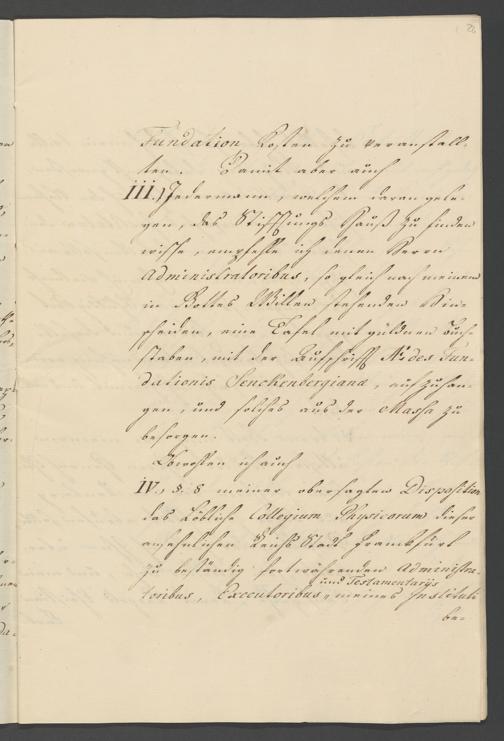 Fundation Kosten zu veranstall-
ten. Damit aber auch
III.) Jedermann, welchem daran gele-
gen, das Stifftungs Hauß zu finden
wisse, empfehle ich denen Herrn
Administratoribus, so gleich nach meinem
in Gottes Willen stehenden Hin-
scheiden, eine Tafel mit güldnen Buch-
staben, mit der Aufschrifft Aedes Fun-
dationis Senckenbergiana, aufzuhan-
gen, und solches aus der Massa zu
besorgen.
Obwohlen ich auch
IV., §. 8 meiner obersagten Disposition
das Löbliche Collegium Physicorum dieser
ansehnlichen Reichs Stadt Franckfurt
zu beständig fortwährenden Administra-
toribus, Executoribus und Testamentarijs meines Instituti
be-